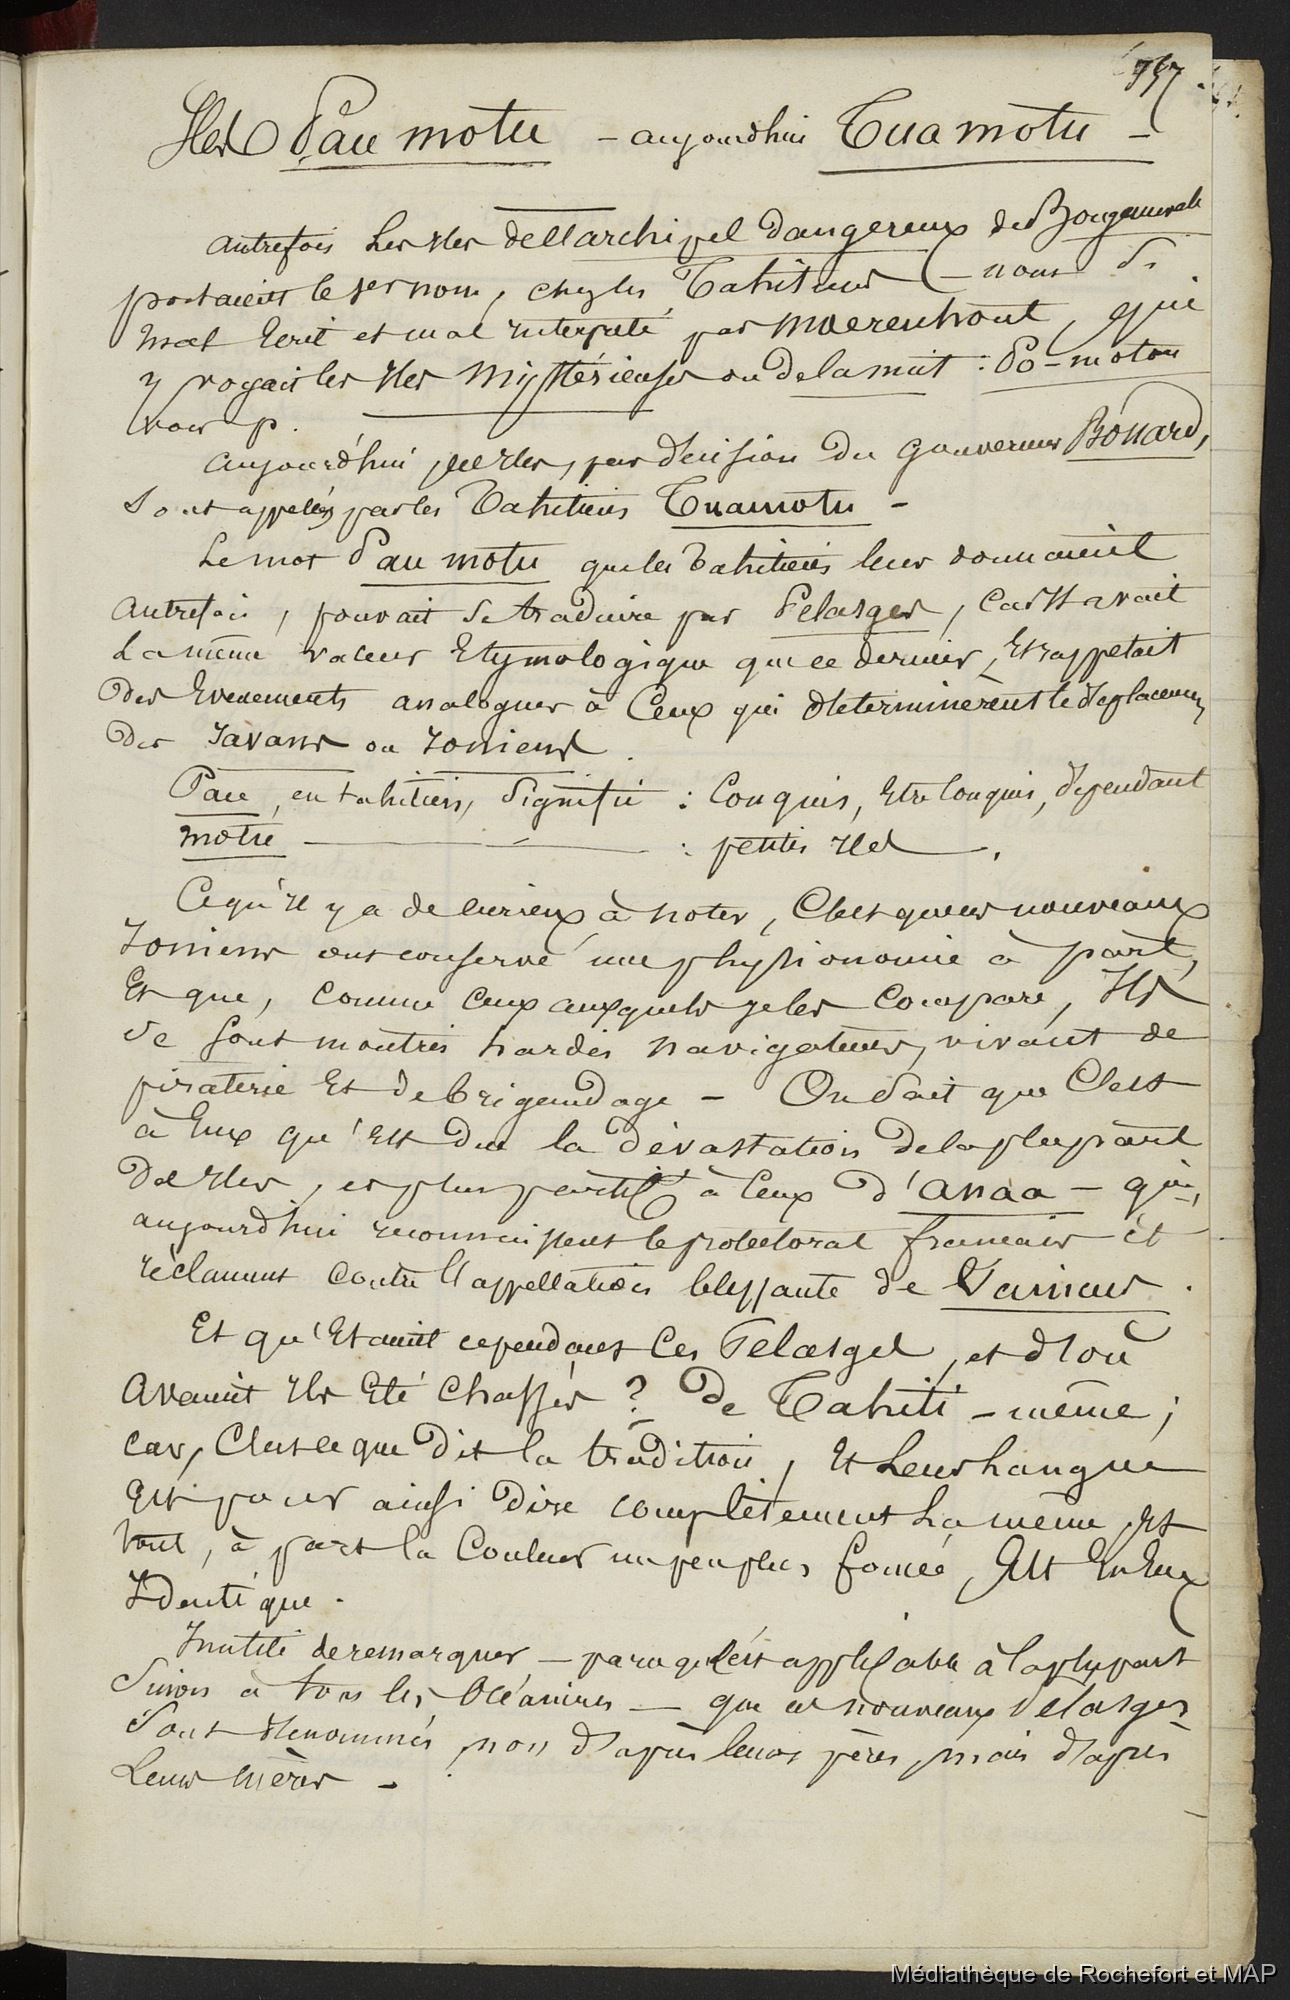 757
Iles Pau motu – aujourdhui Tuamotu –
autrefois Les Iles de l'archipel dangereux de Bougainville
portaient le 1er nom, chez les Tahitiens – nom si
mal Ecrit et mal interpreté par Moerenhout, qui
y voyait les Iles Mystérieuses ou de la nuit : Po-motou
voir p.
aujourd'hui, ces Iles, par décision du gouverneur Bonard,
Sont appelées par les Tahitiens Tuamotu –
Le mot Pau motu que les Tahitiens leur donnaient
autrefois, pouvait se traduire par Pelasges, Car Il avait
La même valeur Etymologique que ce dernier, Et rappelait
des Evenements analogues à Ceux qui determinèrent le déplacement
des Iavans ou Ioniens.
Pau, en tahitien, signifie : Conquis, Etre Conquis, dépendant
motu — : petites Iles.
Ce qu'Il y a de curieux à noter, C'est que ces nouveaux
Ioniens ont conservé une physionomie à part,
Et que, comme Ceux auxquels je les Compare, Ils
se sont montrés hardis navigateurs, vivant de
piraterie Et de brigandage – On sait que C'est
à Eux qu'Est due la dévastation de la plupart
des Iles, et plus partict à Ceux d'Anaa – qui,
aujourd'hui reconnaissent le protectorat français et
réclament Contre l'appellation blessante de Vaincus.
Et qu'Etaient cependant Ces Pelasges, et d'où
Avaient Ils Eté Chassés ? de Tahiti – même ;
Car, C'est ce que dit la tradition, Et Leur Langue
Est pour ainsi dire complètement La même, Et
tout, à part la Couleur un peu plus foncée, Est En Eux
Identique.
Inutile de remarquer – parce que c'est applicable à la plupart
Sinon à tous les Océaniens – que ces nouveaux Pelasges
Sont dénommés, non d'après leurs pères, mais d'après
Leurs mères –
Médiathèque de Rochefort et MAP